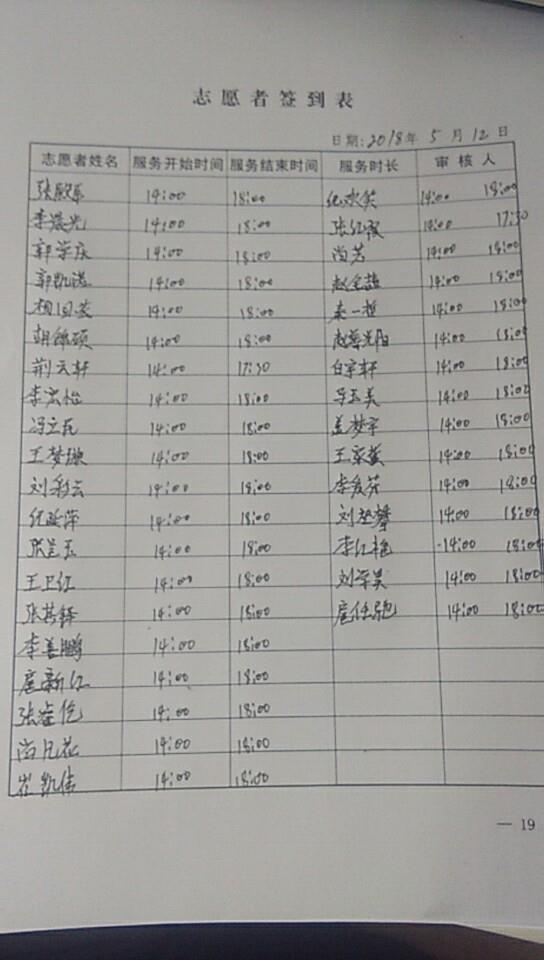 志愿者签到表
日期:2018年 5月 12日
志愿者姓名 服务开始时间 服务结束时间 服务时长 审核人
14:00 18:00 14:00 18:00
李晨光 14:00 18:00 张红霞 14:00 17:30
郭学庆 14:00 18:00 尚芳 14:00 18:00
郭凯诺 14:00 18:00 14:00 18:00
14:00 18:00 14:00 18:00
14:00 18:00 14:00 18:00
荆云轩 14:00 17:30 白宇轩 14:00 18:00
李宏怡 14:00 18:00 14:00 18:00
冯立民 14:00 18:00 孟梦宇 14:00 18:00
王梦琳 14:00 18:00 王家萱 14:00 18:00
刘彩云 14:00 18:00 李爱芬 14:00 18:00
纪延萍 14:00 18:00 14:00 18:00
张兰玉 14:00 18:00 李红艳 14:00 18:00
王卫红 14:00 18:00 刘学昊 14:00 18:00
14:00 18:00 14:00 18:00
李善鹏 14:00 18:00
扈新红 14:00 18:00
14:00 18:00
尚凡花 14:00 18:00
崔凯伟 14:00 18:00
— 19